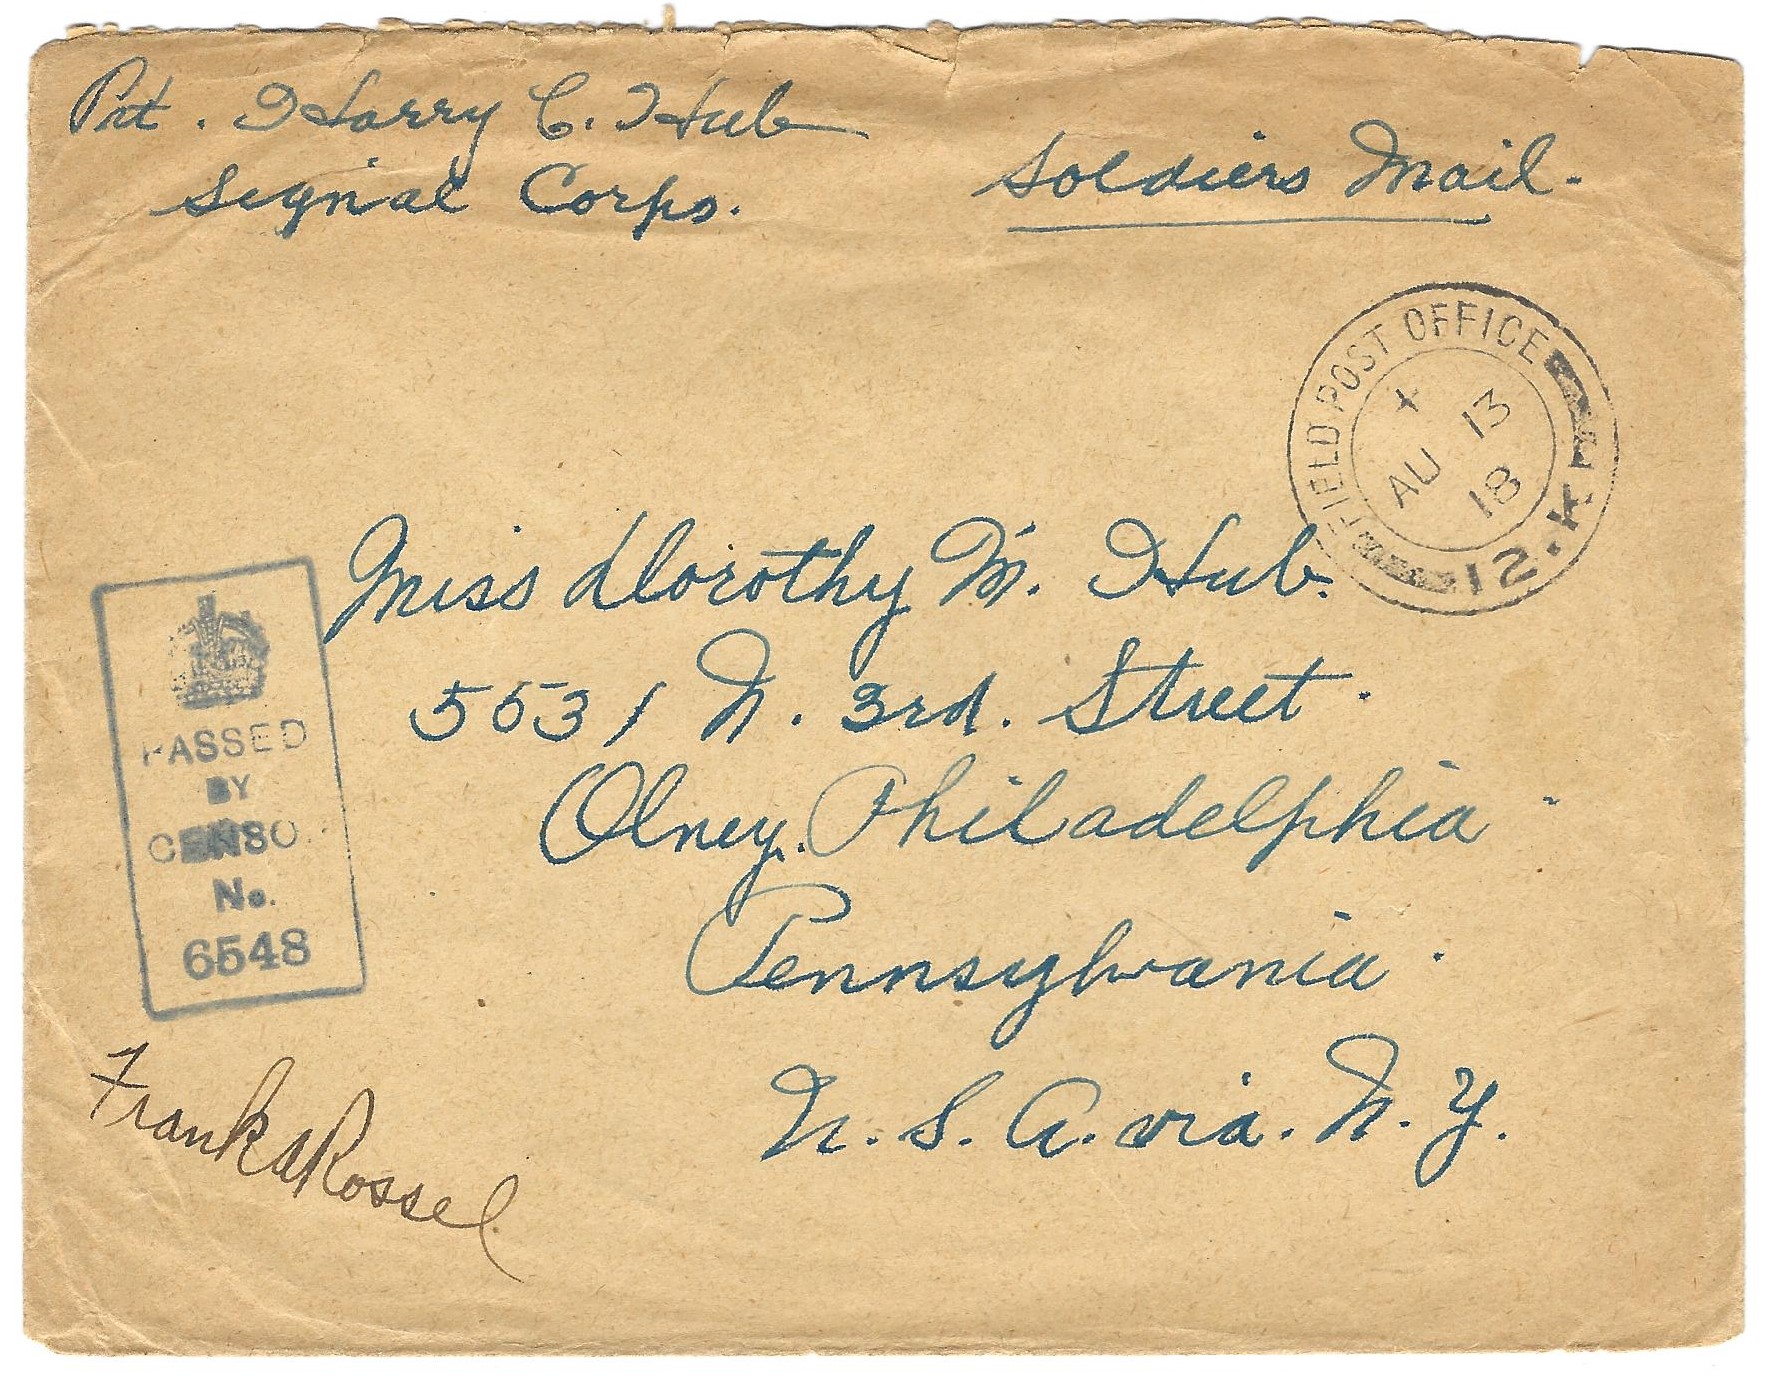 Pvt. Harry C. Hub
Signal Corps.
Soldiers Mail.
FIELD POST OFFICE
12.K
AU 13
18
Miss Dorothy M. Hub.
5531 N. 3rd. Street.
Olney. Philadelphia
Pennsylvania.
U.S.A. via. N.Y.
PASSED
BY
CENSO
No.
6548
Frank A Rossel